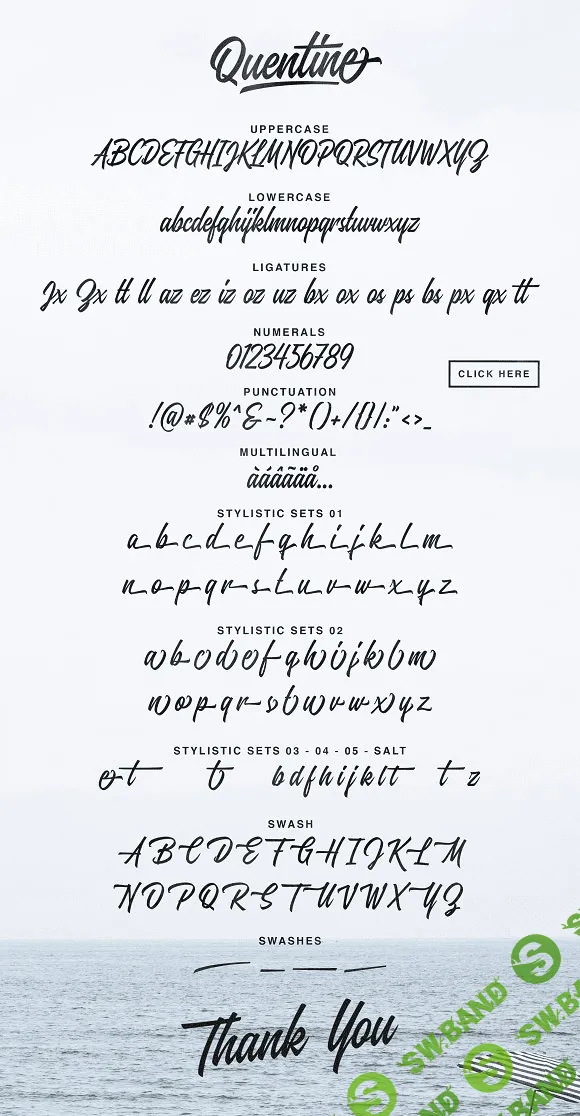 Quentine
UPPERCASE
ABCDEFGHIJKLMNOPQRSTUVWXYZ
LOWERCASE
abcdefghijklmnopqrstuvwxyz
LIGATURES
Jx Zx tt ll az ez iz oz uz bx ox os ps bs px qx tt
NUMERALS
0123456789
CLICK HERE
PUNCTUATION
!@#$%^&~?*()+/{}|:"<>_
MULTILINGUAL
àáâãäå...
STYLISTIC SETS 01
a b c d e f g h i j k l m
n o p q r s t u v w x y z
STYLISTIC SETS 02
a b c d e f g h i j k l m
n o p q r s t u v w x y z
STYLISTIC SETS 03 - 04 - 05 - SALT
et t b d f h i j k l t t t z
SWASH
A B C D E F G H I J K L M
N O P Q R S T U V W X Y Z
SWASHES
Thank You
S SW-BAND
S SW-BAND
S SW-BAND